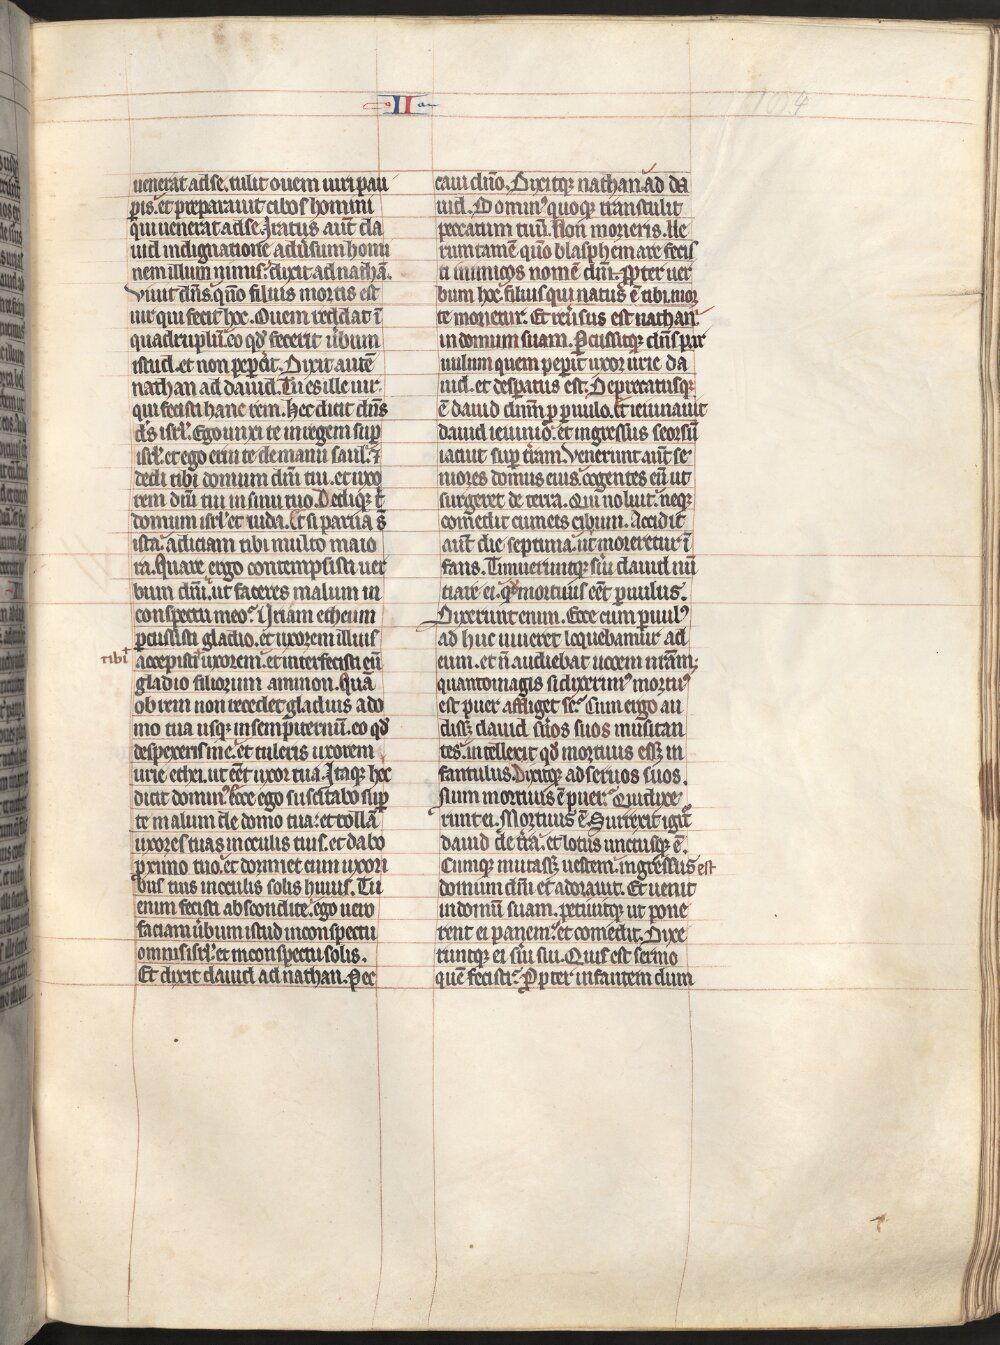 II
104
uenerat ad se. tulit ouem uiri pau
ꝑis. et preparauit cibos homini
qui uenerat ad se. Iratus aut̄ da
uid indignatione adu̾sum homi
nem illum nimis: dixit ad nathā.
Viuit dn̄s. qm̄o filius mortis est
uir qui fecit hoc. Ouem reddat ī
quadruplū. eo qd̓ fecerit ủbum
istud. et non peꝑc̾it. Dixit autē
nathan ad dauid. Tu es ille uir.
qui fecisti hanc rem. Hec dicit dn̄s
d̄s isrl̓. Ego unxi te in regem suꝑ
isrl̓. et ego erui te de manu saul̓. ⁊
dedi tibi domum dn̄i tui. et uxo
rem dn̄i tui in sinu tuo. Dediq; t̓
domum isrl̓ et iuda. Et si parua s̄
ista. adiciam tibi multo maio
ra. Quare ergo contempsisti uer
bum dn̄i. ut faceres malum in
conspectu meo. Uriam etheum
ꝑcussisti gladio. et uxorem illius
tibi
accepisti uxorem. et interfecisti eū
gladio filiorum ammon. Quā
ob rem non recedet gladius a do
mo tua usq; in sempiternū. eo qd̓
despexeris me. et tuleris uxorem
urie ethei. ut eēt uxor tua. Itaq; hec
dicit domin᾽. Ecce ego suscitabo suꝑ
te malum de domo tua: et tollā
uxores tuas in oculis tuis. et dabo
ꝓximo tuo. et dormiet cum uxori
bus tuis in oculis solis huius. Tu
enim fecisti abscondite. ego uero
faciam ủbum istud in conspectu
omnis isrl̓. et in conspectu solis.
Et dixit dauid ad nathan. Pec
caui dn̄o. Dixitq; nathan ad da
uid. Domin᾽ quoq; transtulit
peccatum tuū. Non morieris. Ve
rum tamē qm̄o blasphemare fecis
ti inimicos nomē dn̄i. ꝓpter uer
bum hoc. filius qui natus ē tibi. mor
te morietur. Et reủsus est nathan
in domum suam. Percussitq; dn̄s par
uulum quem peperit uxor urie da
uid. et desperatus est. Deprecatusq;
ē dauid dn̄m ꝓ ꝑuulo. Et ieiunauit
dauid ieiunio. et ingressus seorsū
iacuit suꝑ t̾ram. Venerunt aut̄ se
niores domus eius. cogentes eū ut
surgeret de terra. Qui noluit. neq;
comedit cum eis cibum. Accidit
aut̄ die septima. ut moreretur ī
fans. Timueruntq; sủi dauid nū
tiare ei. qd̓ mortuus eēt ꝑuulus.
Dixerunt enim. Ecce cum ꝑuul᾽
ad huc uiueret loquebamur ad
eum. et n̄ audiebat uocem nr̄am.
quanto magis si dixerim᾽ mortu᾽
est puer affliget se. Cum ergo au
disset dauid sủos suos musitan
tes. intellexit qd̓ mortuus esset in
fantulus. Dixitq; ad seruos suos.
Num mortuus ē puer. Qui dixe
runt ei. Mortuus ē. Surrexit igit̾
dauid de t̾ra. et lotus unctusq; ē.
Cumq; mutasset uestem. ingressus est
domum dn̄i et adorauit. Et uenit
in domū suam. petiuitq; ut pone
rent ei panem. et comedit. Dixe
runtq; ei sủi sui. Quis est sermo
quē fecisti. Propter infantem dum